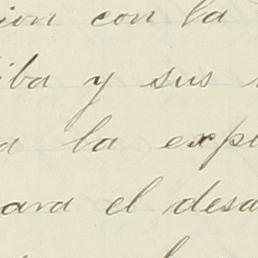 ion con la
iba y sus
a la exp
ara el desa